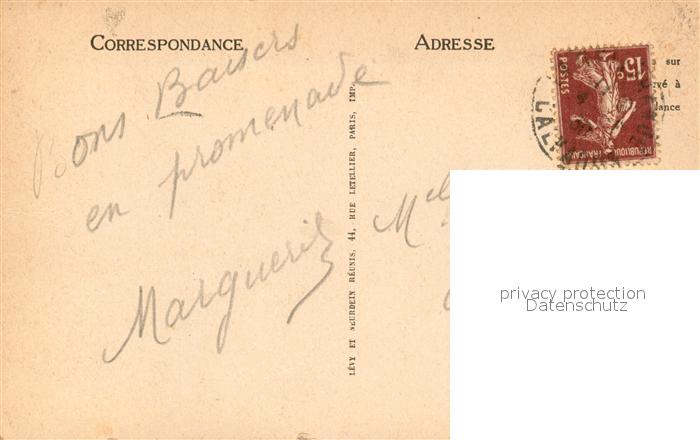 CORRESPONDANCE
ADRESSE
Bons Baisers
en promenade
Marguerite
LÉVY ET NEURDEIN RÉUNIS, 44, RUE LETELLIER, PARIS, IMP.
Mel
sur
vé à
lance
15c
POSTES
REPUBLIQUE FRANÇAISE
privacy protection
Datenschutz